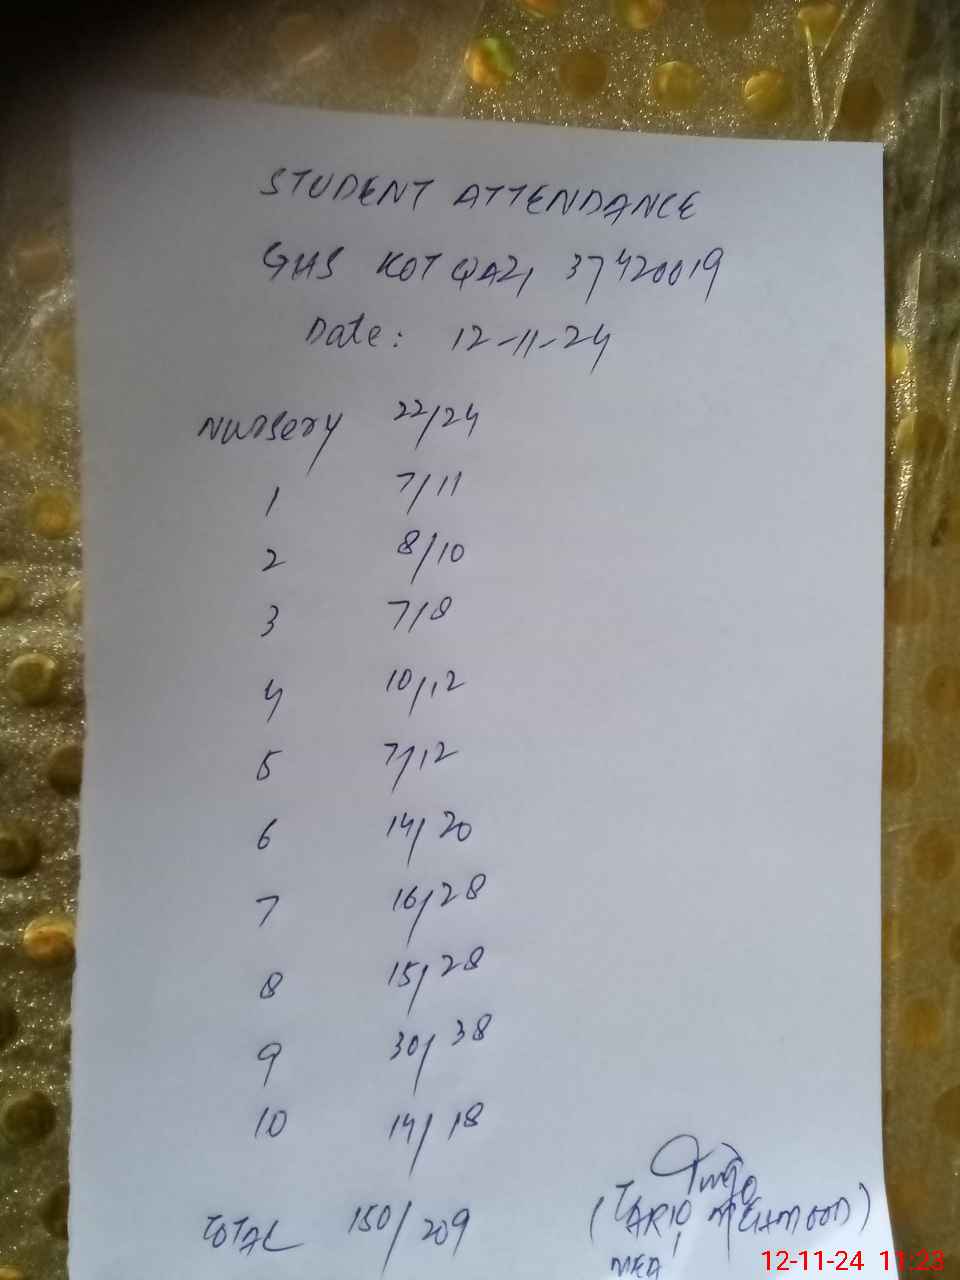 STUDENT ATTENDANCE
GHS KOT QAZI 37420019
Date: 12-11-24
Nursery 22/24
1 7/11
2 8/10
3 7/8
4 10/12
5 7/12
6 14/20
7 16/28
8 15/28
9 30/38
10 14/18
TOTAL 150/209
(TARIQ MEHMOOD)
MEA
12-11-24 11:23